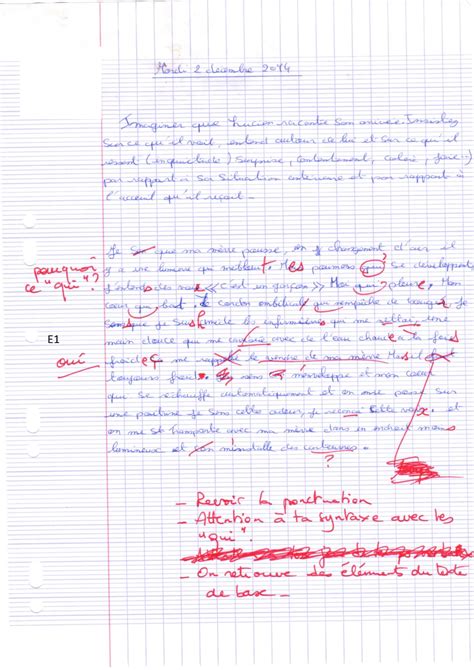 Mardi 2 décembre 2014
Imaginer que Lucien raconte son arrivée. Insistez
sur ce qu'il voit, entend autour de lui et sur ce qu'il
ressent (inquiétude) surprise, contentement, colère, joie...)
par rapport à sa situation antérieure et par rapport à
l'accueil qu'il reçoit.
Je que ma mère pousse, un changement d'air il
y a une lumière qui m'éblouit. Mes poumons qui se développent
pourquoi
ce "qui"?
j'entends des « c'est un garçon » Mon qui pleure. Mon
cœur qui bat. Le cordon ombilical qui m'empêche de bouger. Je
E1
que je suis humide les infirmières qui me Une
main douce qui me caresse avec de l'eau chaude à la fois
oui
froide et me rappelle le ventre de ma mère Mais il
toujours froid. m'enveloppe et mon cœur
qui se réchauffe automatiquement et on me pose sur
une poitrine je sens cette odeur, je reconnais cette voix. et
on me transporte avec ma mère dans un endroit moins
lumineux et on m'installe des
?
- Revoir la ponctuation
- Attention à ta syntaxe avec les
"qui".
- On retrouve des éléments du texte
de base -